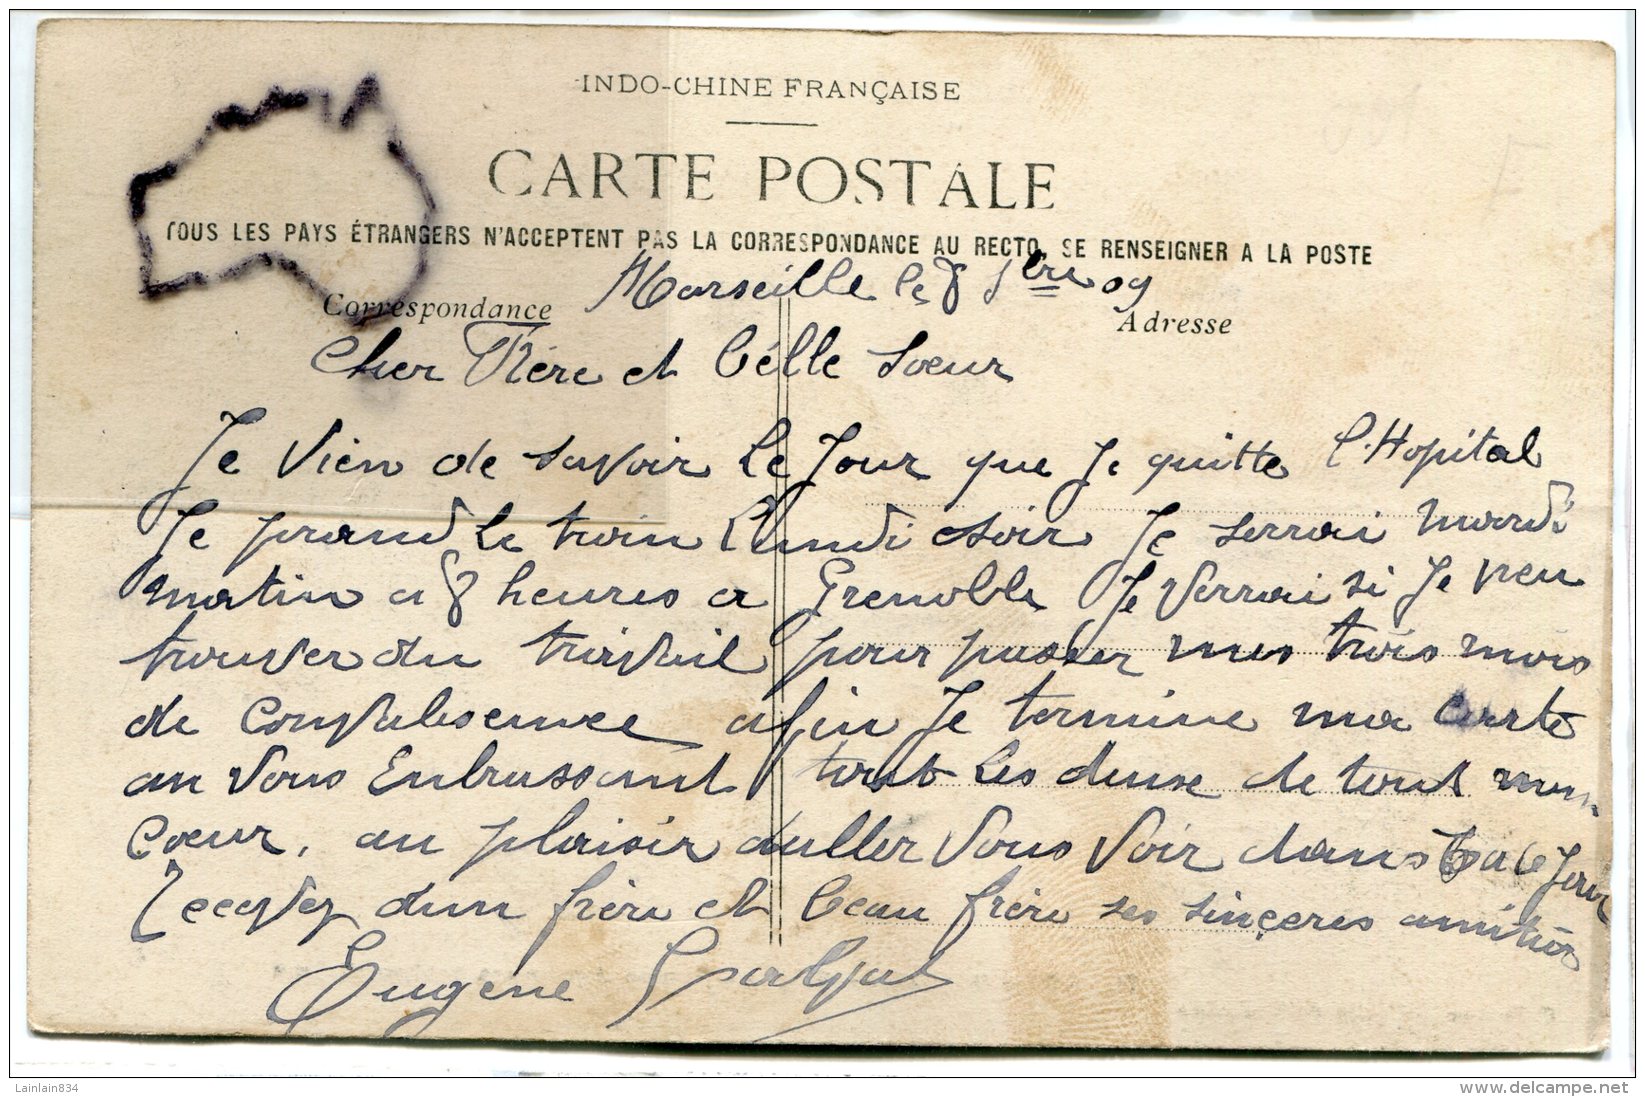 INDO-CHINE FRANÇAISE
CARTE POSTALE
TOUS LES PAYS ÉTRANGERS N'ACCEPTENT PAS LA CORRESPONDANCE AU RECTO, SE RENSEIGNER A LA POSTE
Correspondance
Marseille le 8 bre 09
Adresse
Cher Frére et bélle Soeur
Je vien de savoir le jour que je quitte l'Hopital
Je prand le train lundi soir je serrai mardi
matin a 8 heures a Grenoble je verrai si je peu
trouver du travail pour passer mes trois mois
de convalesennce afin je termine ma carte
an vous Enbrassant tout les deuse de tout mon
coeur, au plaisir daller vous voir dans
Recevez dun frère et beau frère ses sinçeres amitiés
Eugene
Lainlain834
www.delcampe.net